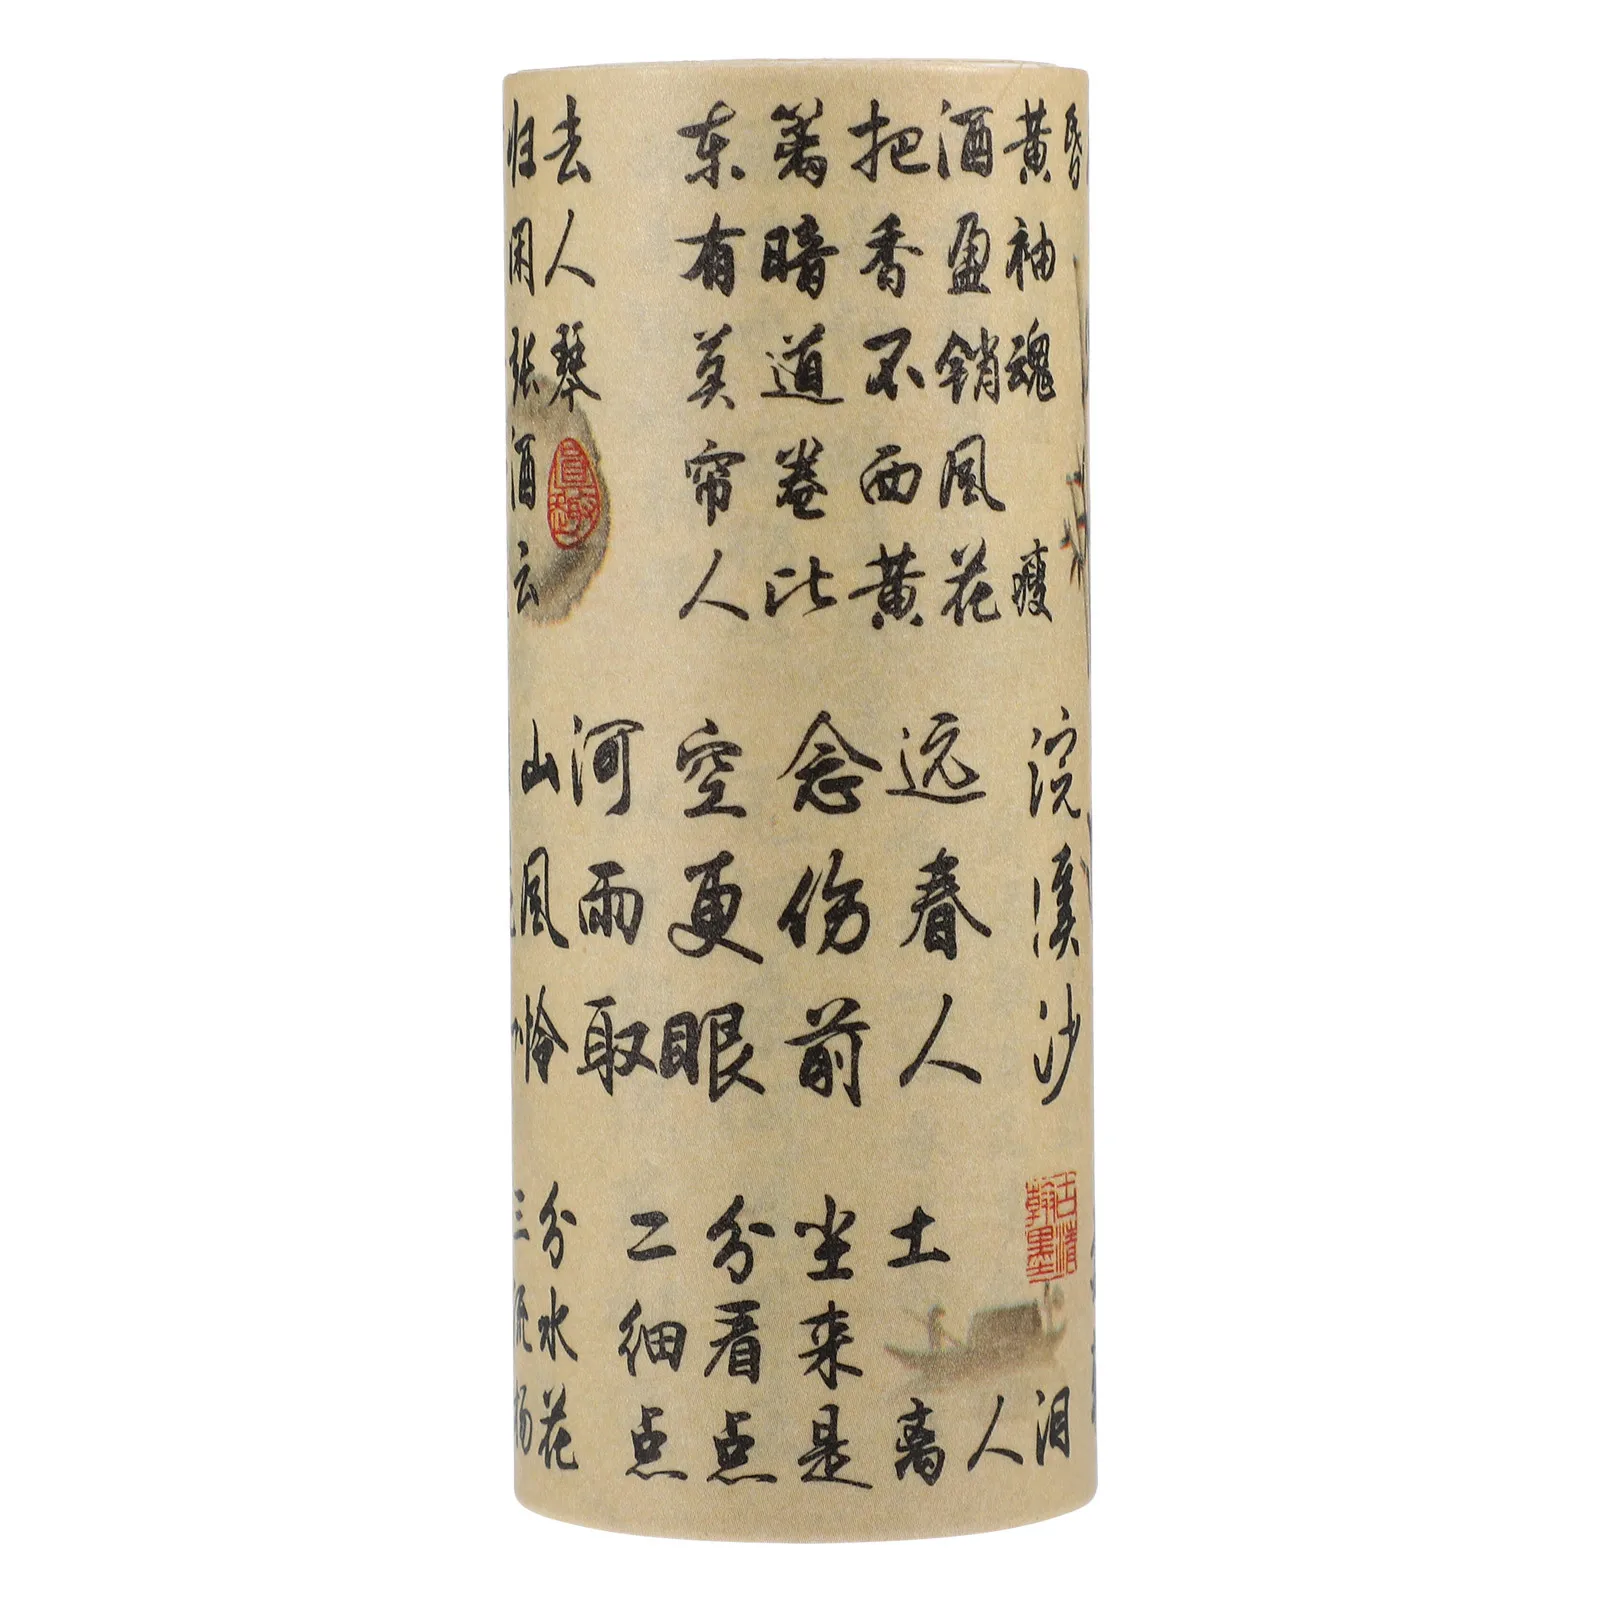 归去
闲人
张琴
酒
云
东篱把酒黄昏
有暗香盈袖
莫道不销魂
帘卷西风
人比黄花瘦
浣溪沙
山河空念远
风雨更伤春
怜取眼前人
三分
流水
杨花
二分尘土
细看来
点点是离人泪